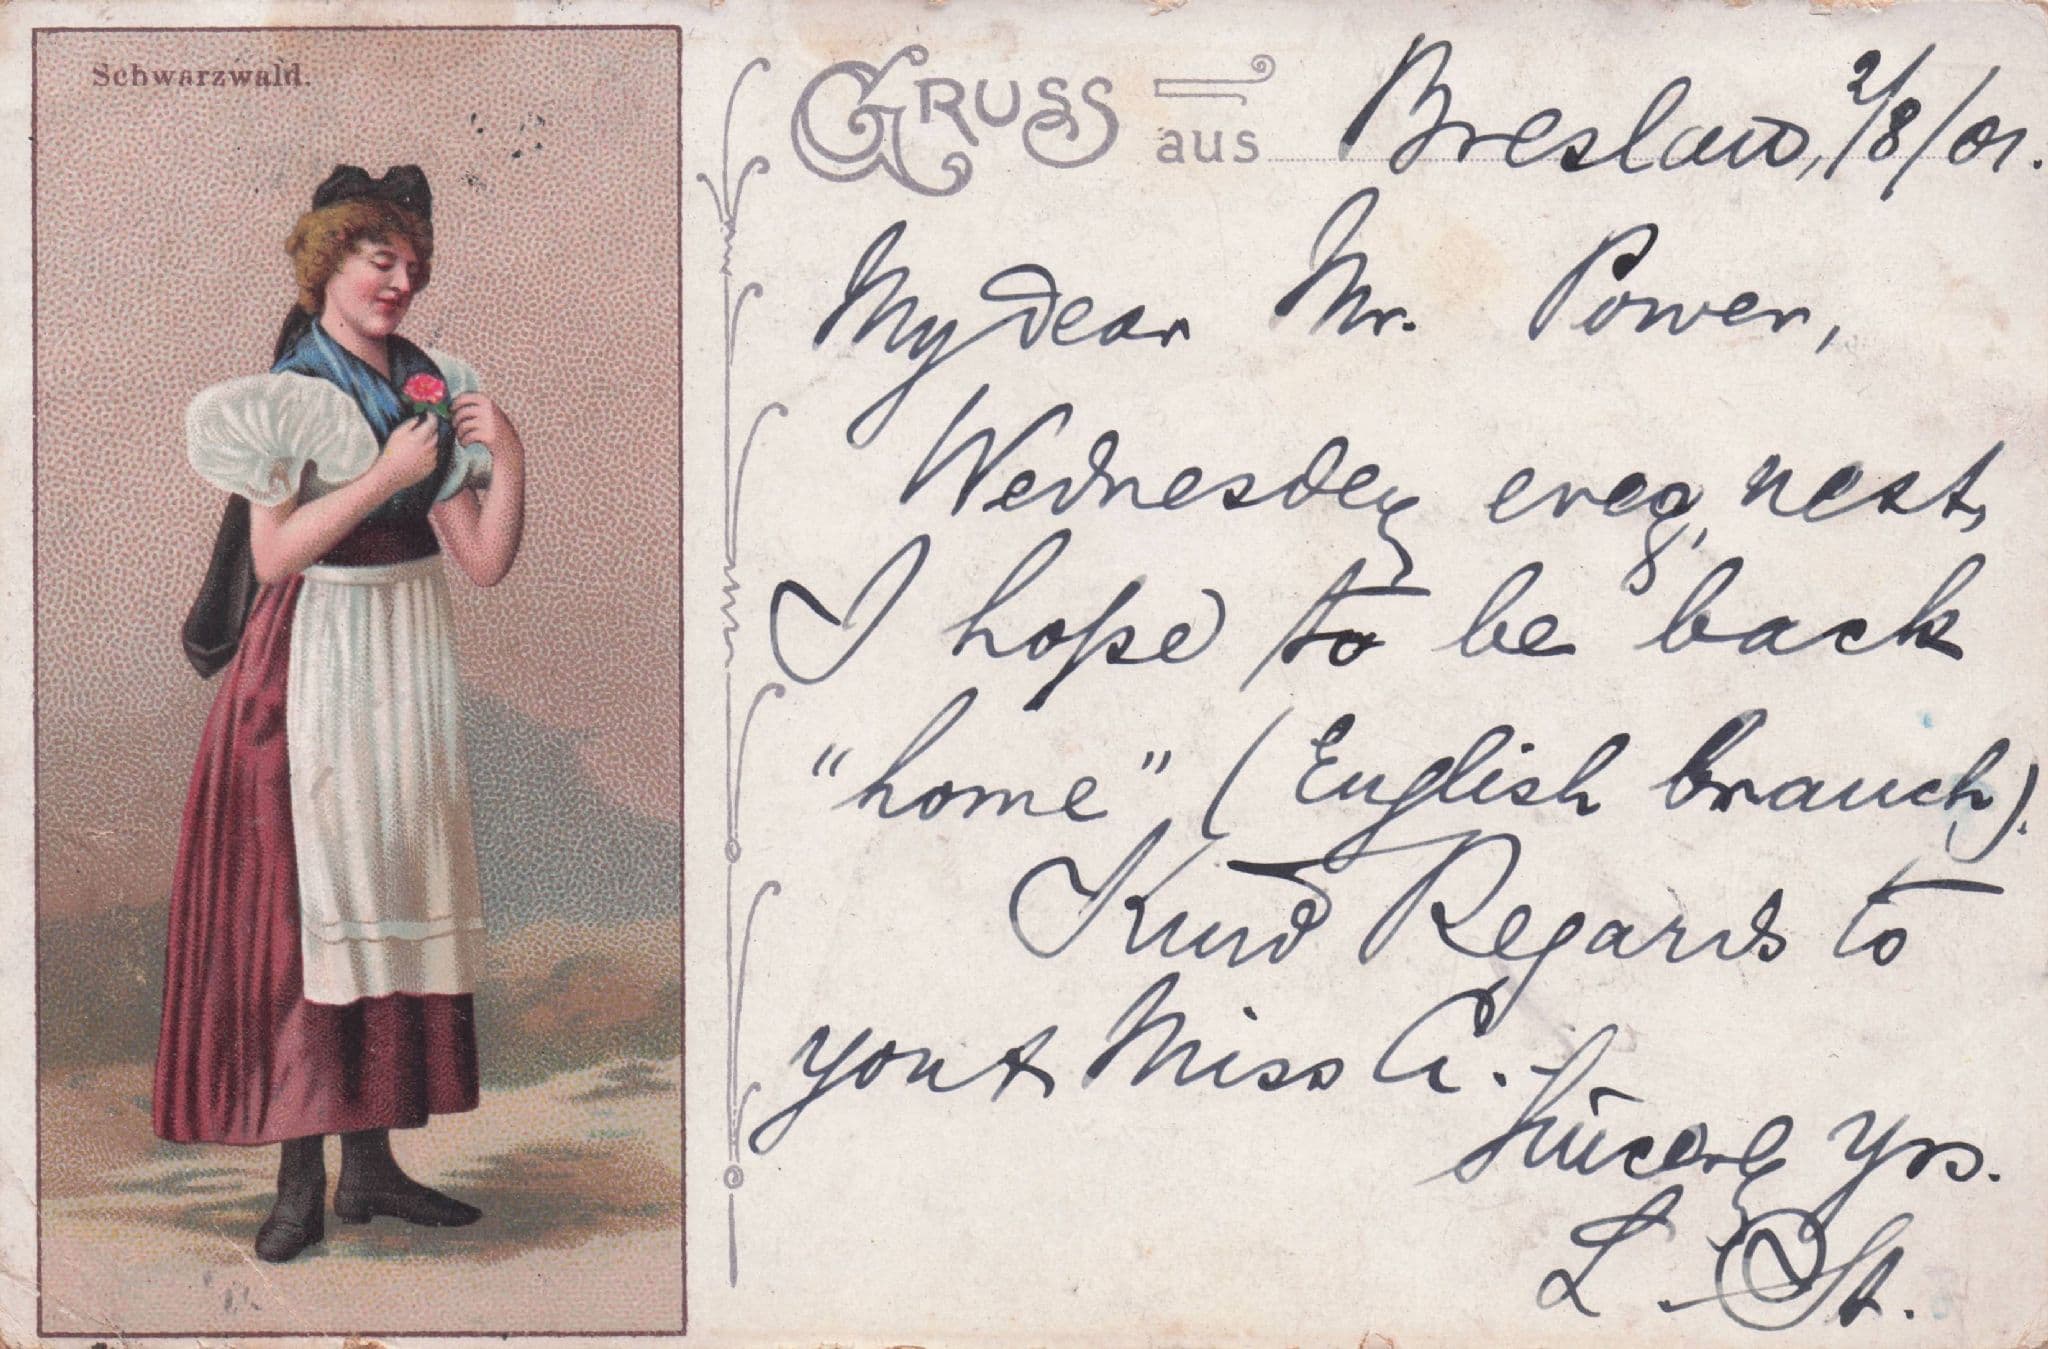 Schwarzwald.
GRUSS aus Breslau, 2/8/01.
My dear Mr. Power,
Wednesday eveg, next,
I hope to be back
"home" (English branch).
Kind Regards to
you & Miss C.
Sincerely yrs.
L. St.